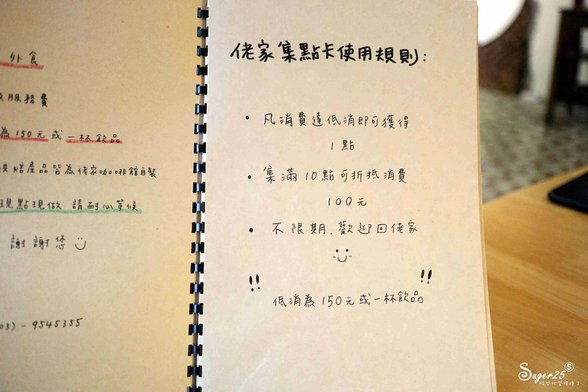 外食
服務費
為150元或一杯飲品
產品皆為佬家咖啡館自製
現點現做 請耐心等候
謝謝您
03)-9545355
佬家集點卡使用規則:
• 凡消費達低消即可獲得
1點
• 集滿10點可折抵消費
100元
• 不限期,歡迎回佬家
!! !!
低消為150元或一杯飲品
Suger25